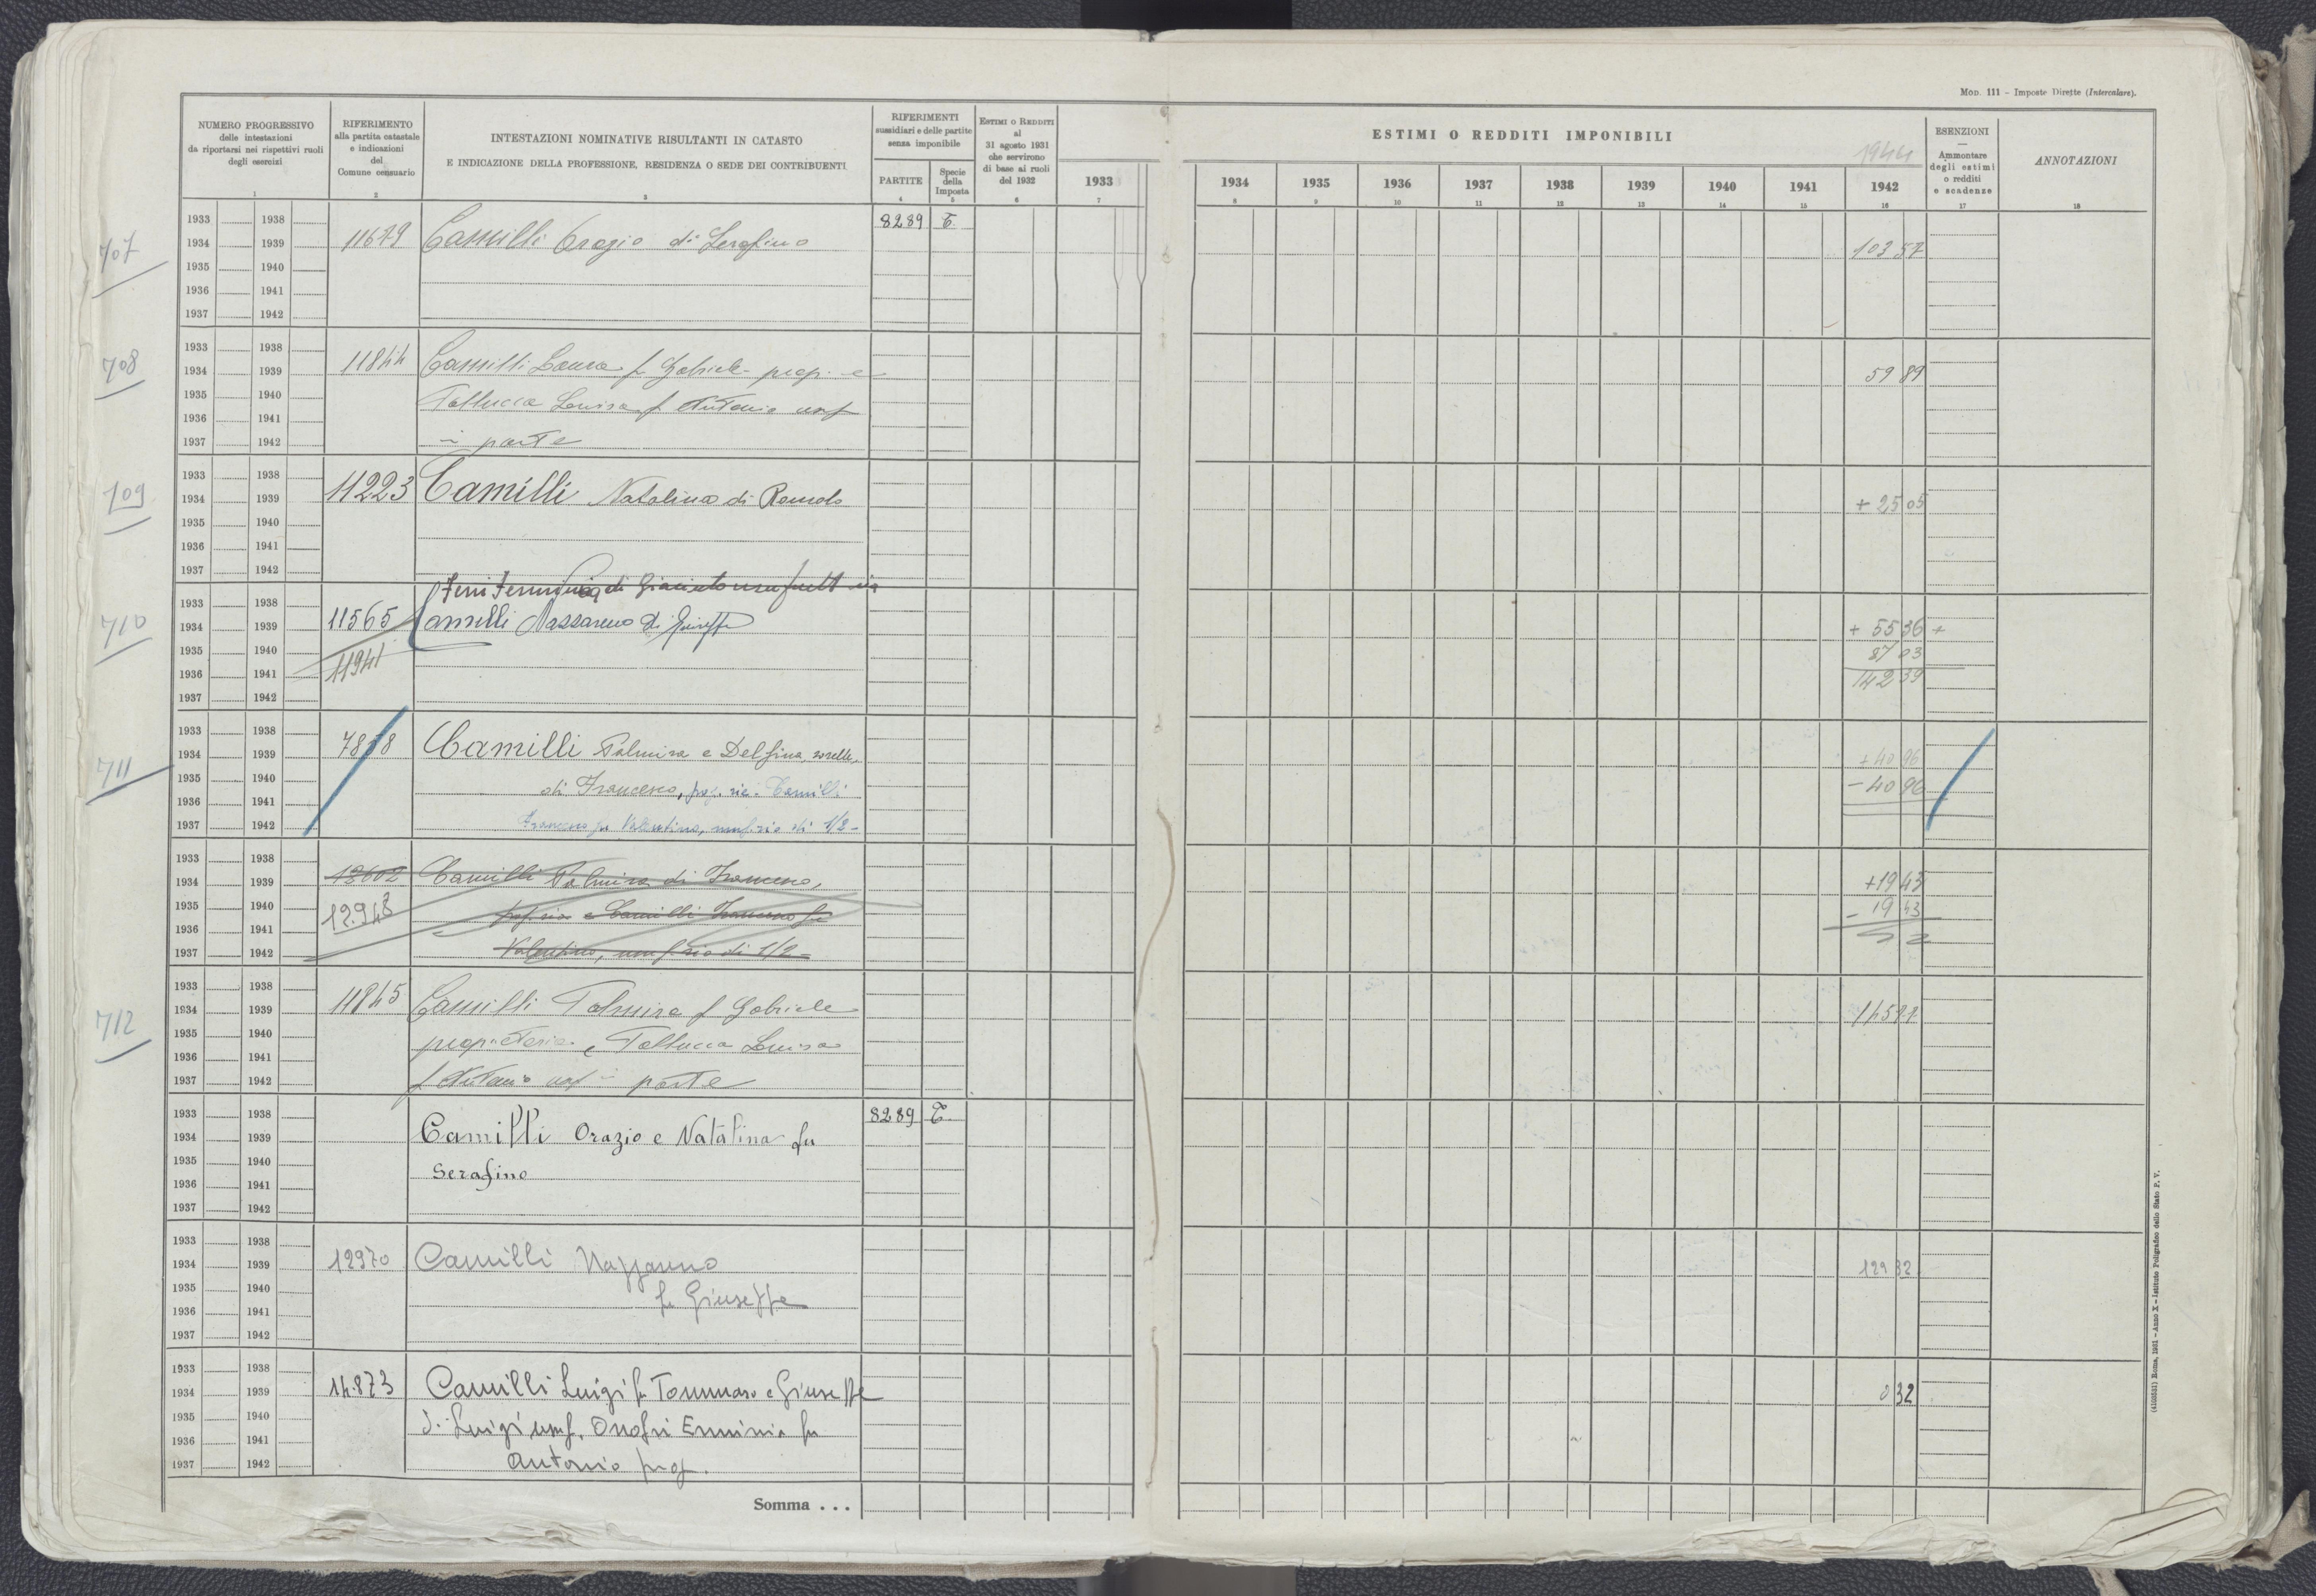 Mod. 111 - Imposte Dirette (Intercalare).
NUMERO PROGRESSIVO
delle intestazioni
da riportarsi nei rispettivi ruoli
degli esercizi
1
RIFERIMENTO
alla partita catastale
e indicazioni
del
Comune censuario
2
INTESTAZIONI NOMINATIVE RISULTANTI IN CATASTO
E INDICAZIONE DELLA PROFESSIONE, RESIDENZA O SEDE DEI CONTRIBUENTI
3
RIFERIMENTI
sussidiari e delle partite
senza imponibile
PARTITE
4
Specie
della
Imposta
5
ESTIMI O REDDITI
al
31 agosto 1931
che servirono
di base ai ruoli
del 1932
6
ESTIMI O REDDITI IMPONIBILI
1944
1933 1934 1935 1936 1937 1938 1939 1940 1941 1942
7 8 9 10 11 12 13 14 15 16
ESENZIONI
Ammontare
degli estimi
o redditi
e scadenze
17
ANNOTAZIONI
18
707
1933 1938
1934 1939
1935 1940
1936 1941
1937 1942
11679 Camilli Orazio di Serafino 8289 T. 103 57
708
1933 1938
1934 1939
1935 1940
1936 1941
1937 1942
11844 Camilli Laura f Gabriele prop. e 59 89
Tallucca Louisa f Antonio usuf
in parte
709
1933 1938
1934 1939
1935 1940
1936 1941
1937 1942
11223 Camilli Natalina di Romolo + 25 05
di Giacinto
710
1933 1938
1934 1939
1935 1940
1936 1941
1937 1942
11565 Camilli Nazzareno di Giuseppe + 55 36 +
11941 87 03
142 39
711
1933 1938
1934 1939
1935 1940
1936 1941
1937 1942
7858 Camilli Palmira e Delfina, sorelle, + 40 96
di Francesco, pop. rie. Camilli - 40 96
Francesco fu Valentino, usuf.rio di 1/2 -
1933 1938
1934 1939
1935 1940
1936 1941
1937 1942
12602 Camilli Palmira di Francesco, +19 43
12.948 prop.ria e Camilli Francesco fu - 19 43
Valentino, usuf.rio di 1/2 =
712
1933 1938
1934 1939
1935 1940
1936 1941
1937 1942
11845 Camilli Palmira f Gabriele
proprietaria e Tallucca Louisa
f Antonio usf in parte
1933 1938
1934 1939
1935 1940
1936 1941
1937 1942
Camilli Orazio e Natalina fu 8289 T.
Serafino
1933 1938
1934 1939
1935 1940
1936 1941
1937 1942
12970 Camilli Nazzareno 129 32
fu Giuseppe
1933 1938
1934 1939
1935 1940
1936 1941
1937 1942
14.873 Camilli Luigi fu Tommaso e Giuseppe 0 32
di Luigi usuf. Onofri Erminia fu
Antonio prop.
Somma . . .
(4103531) Roma, 1931 - Anno X - Istituto Poligrafico dello Stato P. V.